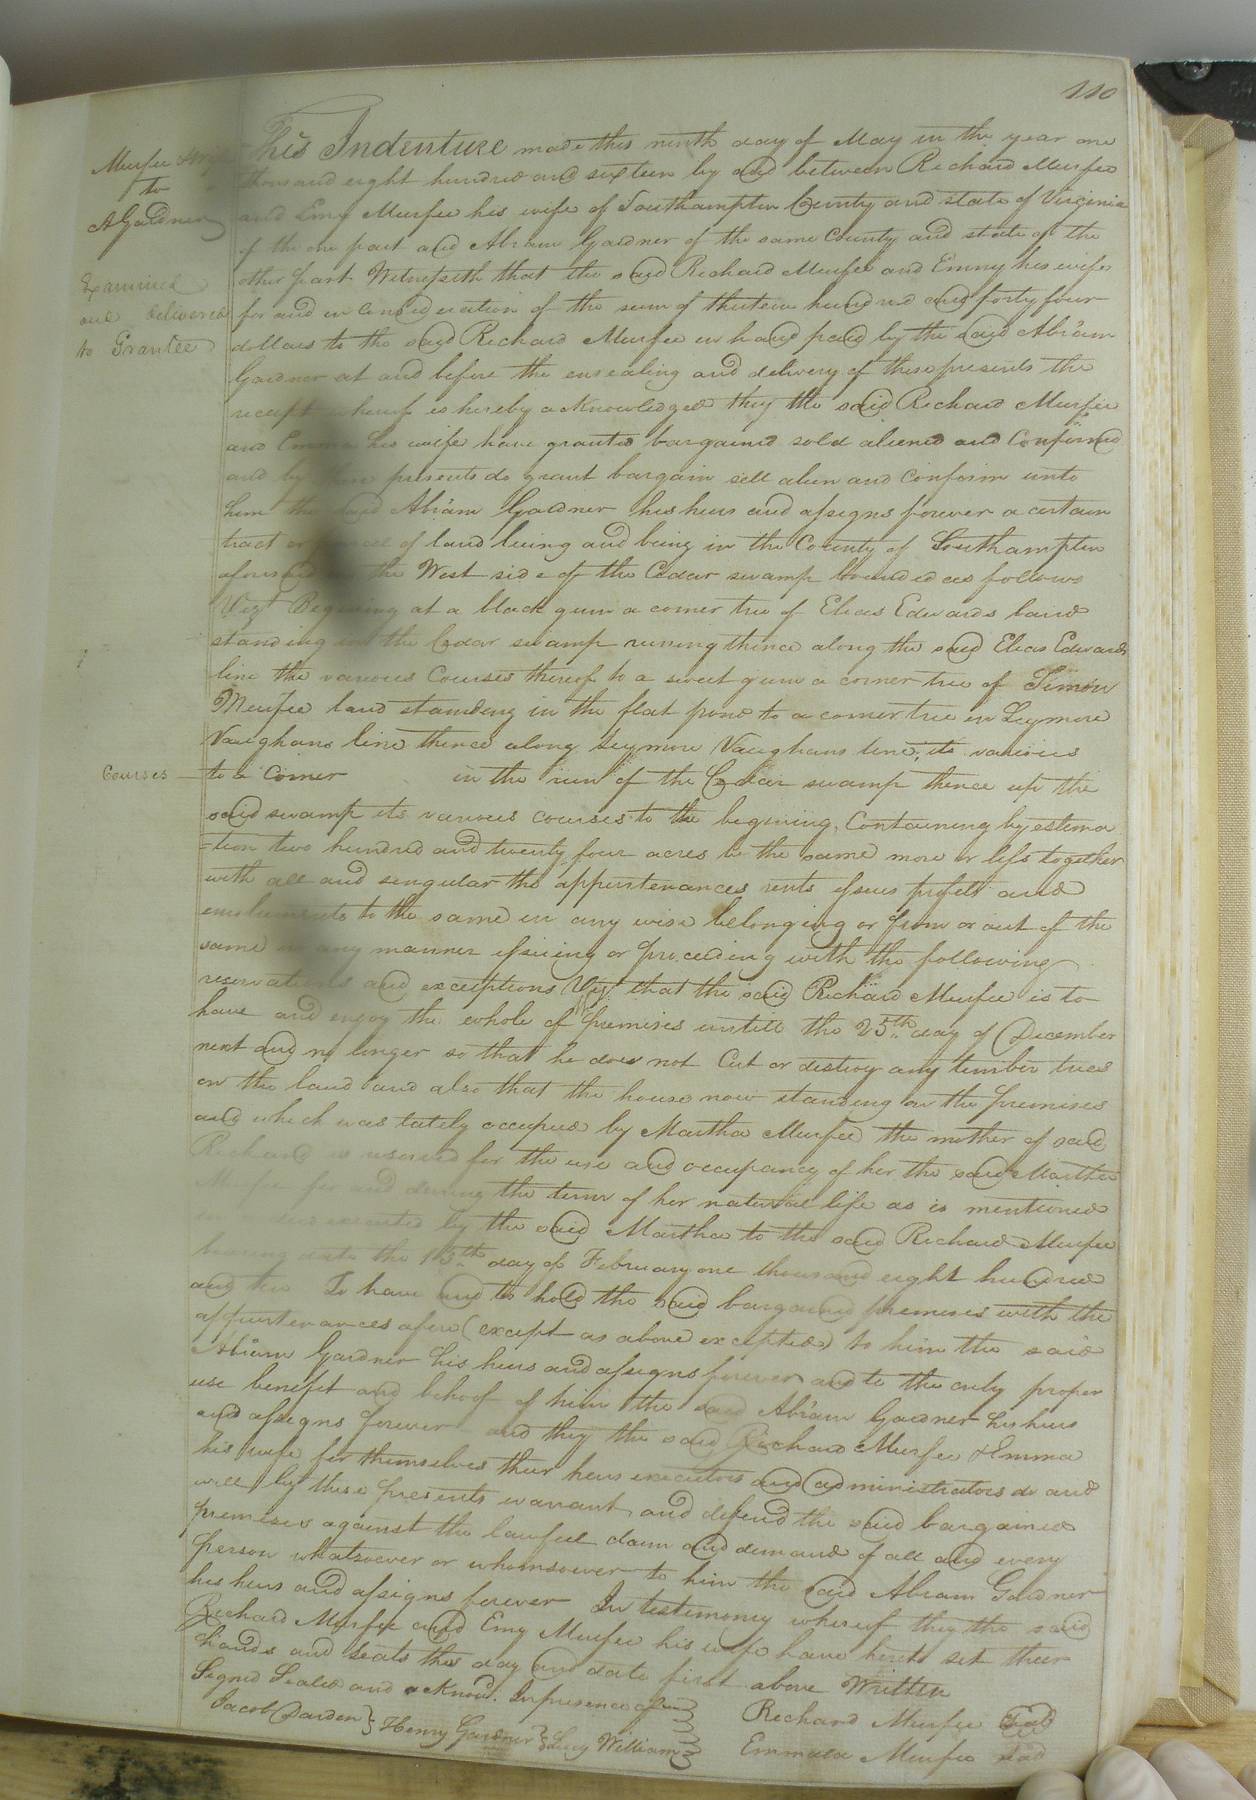 110
Murfee & wife
to
A Gardner
Examined
and delivered
to Grantee
This Indenture made this ninth day of May in the year one
thousand eight hundred and sixteen by and between Richard Murfee
and Emy Murfee his wife of Southampton County and state of Virginia
of the one part and Abram Gardner of the same County and state of the
other part Witnesseth that the said Richard Murfee and Emmy his wife
for and in consideration of the sum of thirteen hundred and forty four
dollars to the said Richard Murfee in hand paid by the said Abram
Gardner at and before the ensealing and delivery of these presents the
receipt whereof is hereby acknowledged they the said Richard Murfee
and Emma his wife have granted bargained sold aliened and Confirmed
and by these presents do grant bargain sell alien and Confirm unto
him the said Abram Gardner his heirs and assigns forever a certain
tract or parcel of land lieing and being in the County of Southampton
aforesaid on the West side of the Cedar swamp bounded as follows
Vizt Begining at a black gum a corner tree of Elias Edwards land
standing in the Cedar swamp runing thence along the said Elias Edwards
line the various Courses thereof to a sweet gum a corner tree of Simon
Murfee land standing in the flat pond to a corner tree in Seymore
Vaughans line thence along Seymore Vaughans line, its various
Courses to a Corner in the run of the Cedar swamp thence up the
said swamp its various courses to the begining, Containing by estima
=tion two hundred and twenty four acres be the same more or less together
with all and singular the appurtenances rents issues profits and
emoluments to the same in any wise belonging or from or out of the
same in any manner issuing or proceeding with the following
reservations and exceptions Vizt that the said Richard Murfee is to
have and enjoy the whole of premises untill the 25th day of December
next and no longer so that he does not Cut or destroy any timber trees
on the land and also that the house now standing on the premises
and which was lately occupied by Martha Murfee the mother of said
Richard is reserved for the use and occupancy of her the said Martha
Murfee for and during the term of her natural life as is mentioned
executed by the said Martha to the said Richard Murfee
bearing date the 13th day of February one thousand eight hundred
and ten To have and to hold the said bargained premises with the
appurtenances afore (except as above excepted) to him the said
Abram Gardner his heirs and assigns forever and to the only proper
use benefit and behoof of him the said Abram Gardner his heirs
and assigns forever and they the said Richard Murfee & Emma
his wife for themselves their heirs executors and administrators do and
will by these presents warrant and defend the said bargained
premises against the lawfull claim and demand of all and every
person whatsoever or whomsoever to him the said Abram Gardner
his heirs and assigns forever In testimony whereof they the said
Richard Murfee and Emy Murfee his wife have hereto set their
hands and seals the day and date first above Written
Signed Sealed and acknowd. In presence of
Jacob Darden } Henry Gardner } Lucy William
Richard Murfee Seal
Emmala Murfee Seal